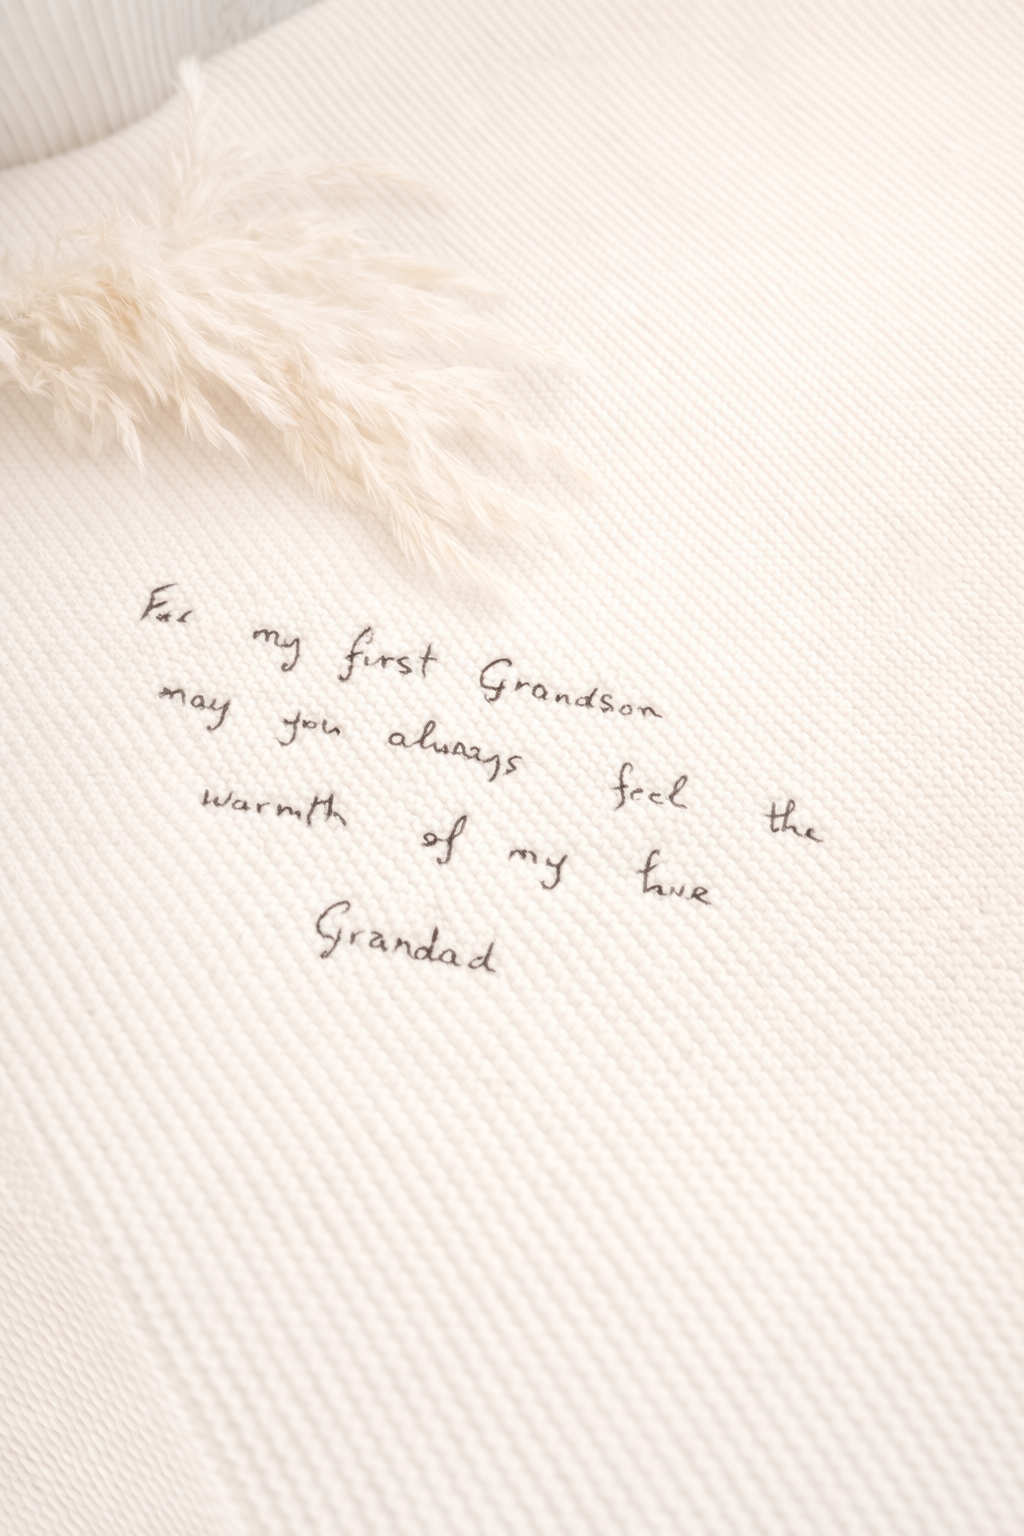 For my first Grandson
may you always feel the
warmth of my love
Grandad